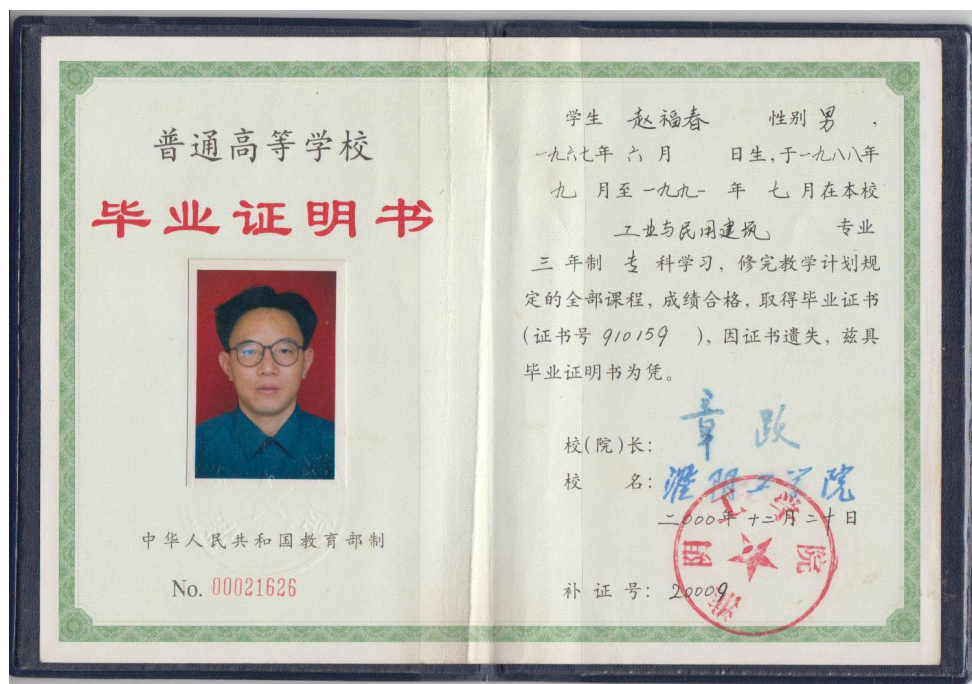 普通高等学校
毕业证明书
中华人民共和国教育部制
No. 00021626
学生 赵福春 性别 男 ，
一九六七年 六 月 日生，于一九八八年
九 月至一九九一 年 七 月在本校
工业与民用建筑 专业
三 年制 专 科学习，修完教学计划规
定的全部课程，成绩合格，取得毕业证书
(证书号 910159 )，因证书遗失，兹具
毕业证明书为凭。
校(院)长： 章跃
校 名： 淮阴工学院
二〇〇〇年 十二月 二十日
补 证 号： 20009
淮阴工学院